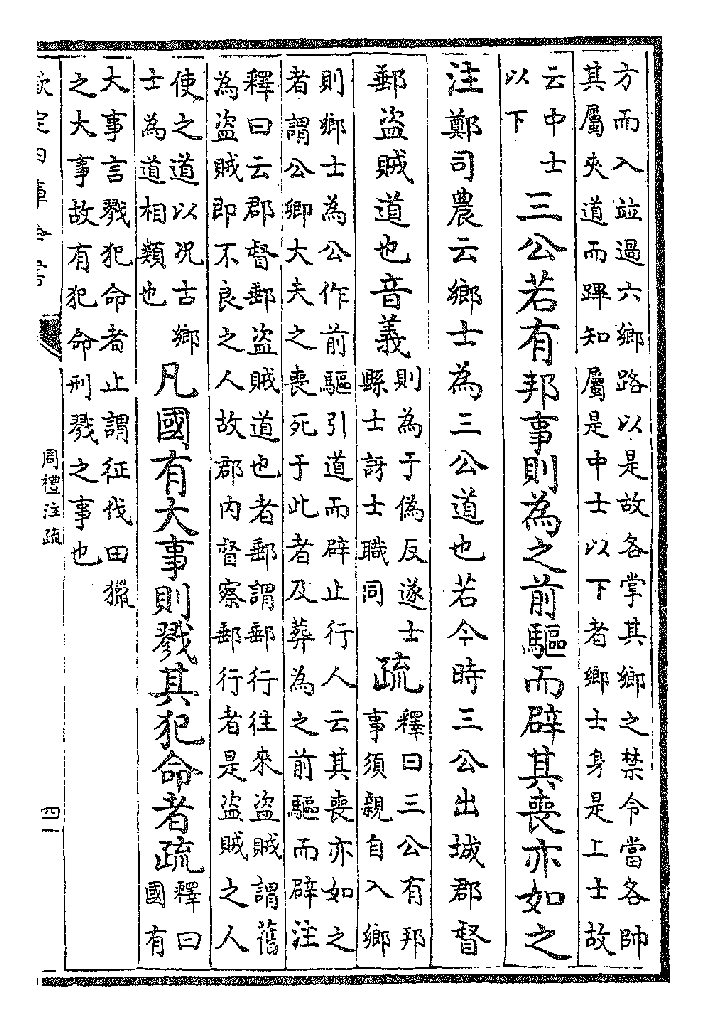 方而入竝過六鄉路以是故各掌其鄉之禁令當各帥
其屬夾道而蹕知屬是中士以下者鄉士身是上士故
云中士
以下
三公若有邦事則為之前驅而辟其喪亦如之
注鄭司農云鄉士為三公道也若今時三公出城郡督
郵盜賊道也音義
則為于偽反遂士
縣士訝士職同
疏
釋曰三公有邦
事須親自入鄉
則鄉士為公作前驅引道而辟止行人云其喪亦如之
者謂公卿大夫之喪死于此者及葬為之前驅而辟注
釋曰云郡督郵盜賊道也者郵謂郵行往來盜賊謂舊
為盜賊即不良之人故郡內督察郵行者是盜賊之人
使之道以况古鄉
士為道相類也
凡國有大事則戮其犯命者疏
釋曰
國有
大事言戮犯命者止謂征伐田獵
之大事故有犯命刑戮之事也
欽定四庫全書
周禮注疏
四一